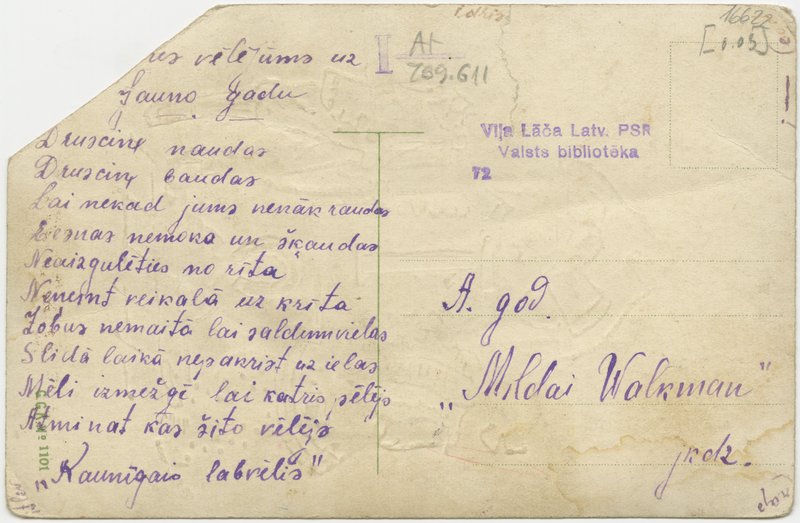 vēlējums uz
Jauno gadu
Drusciņ naudas
Drusciņ baudas
Lai nekad jums nenāk raudas
Iesnas nemoka un škaudas
Neaizgulēties no rīta
Neņemt veikalā uz krīta
Zobus nemaitā lai saldumvielas
Slidā laikā nepakrist uz ielas
Mēli izmežģī lai katris pēlējs
Atminat kas šito vēlējs
"Kaunīgais labvēlis"
I
At
709.611
16622
[0.03]
Viļa Lāča Latv. PSR
Valsts bibliotēka
72
A. god.
„Mildai Walkman"
jkdz.
1101